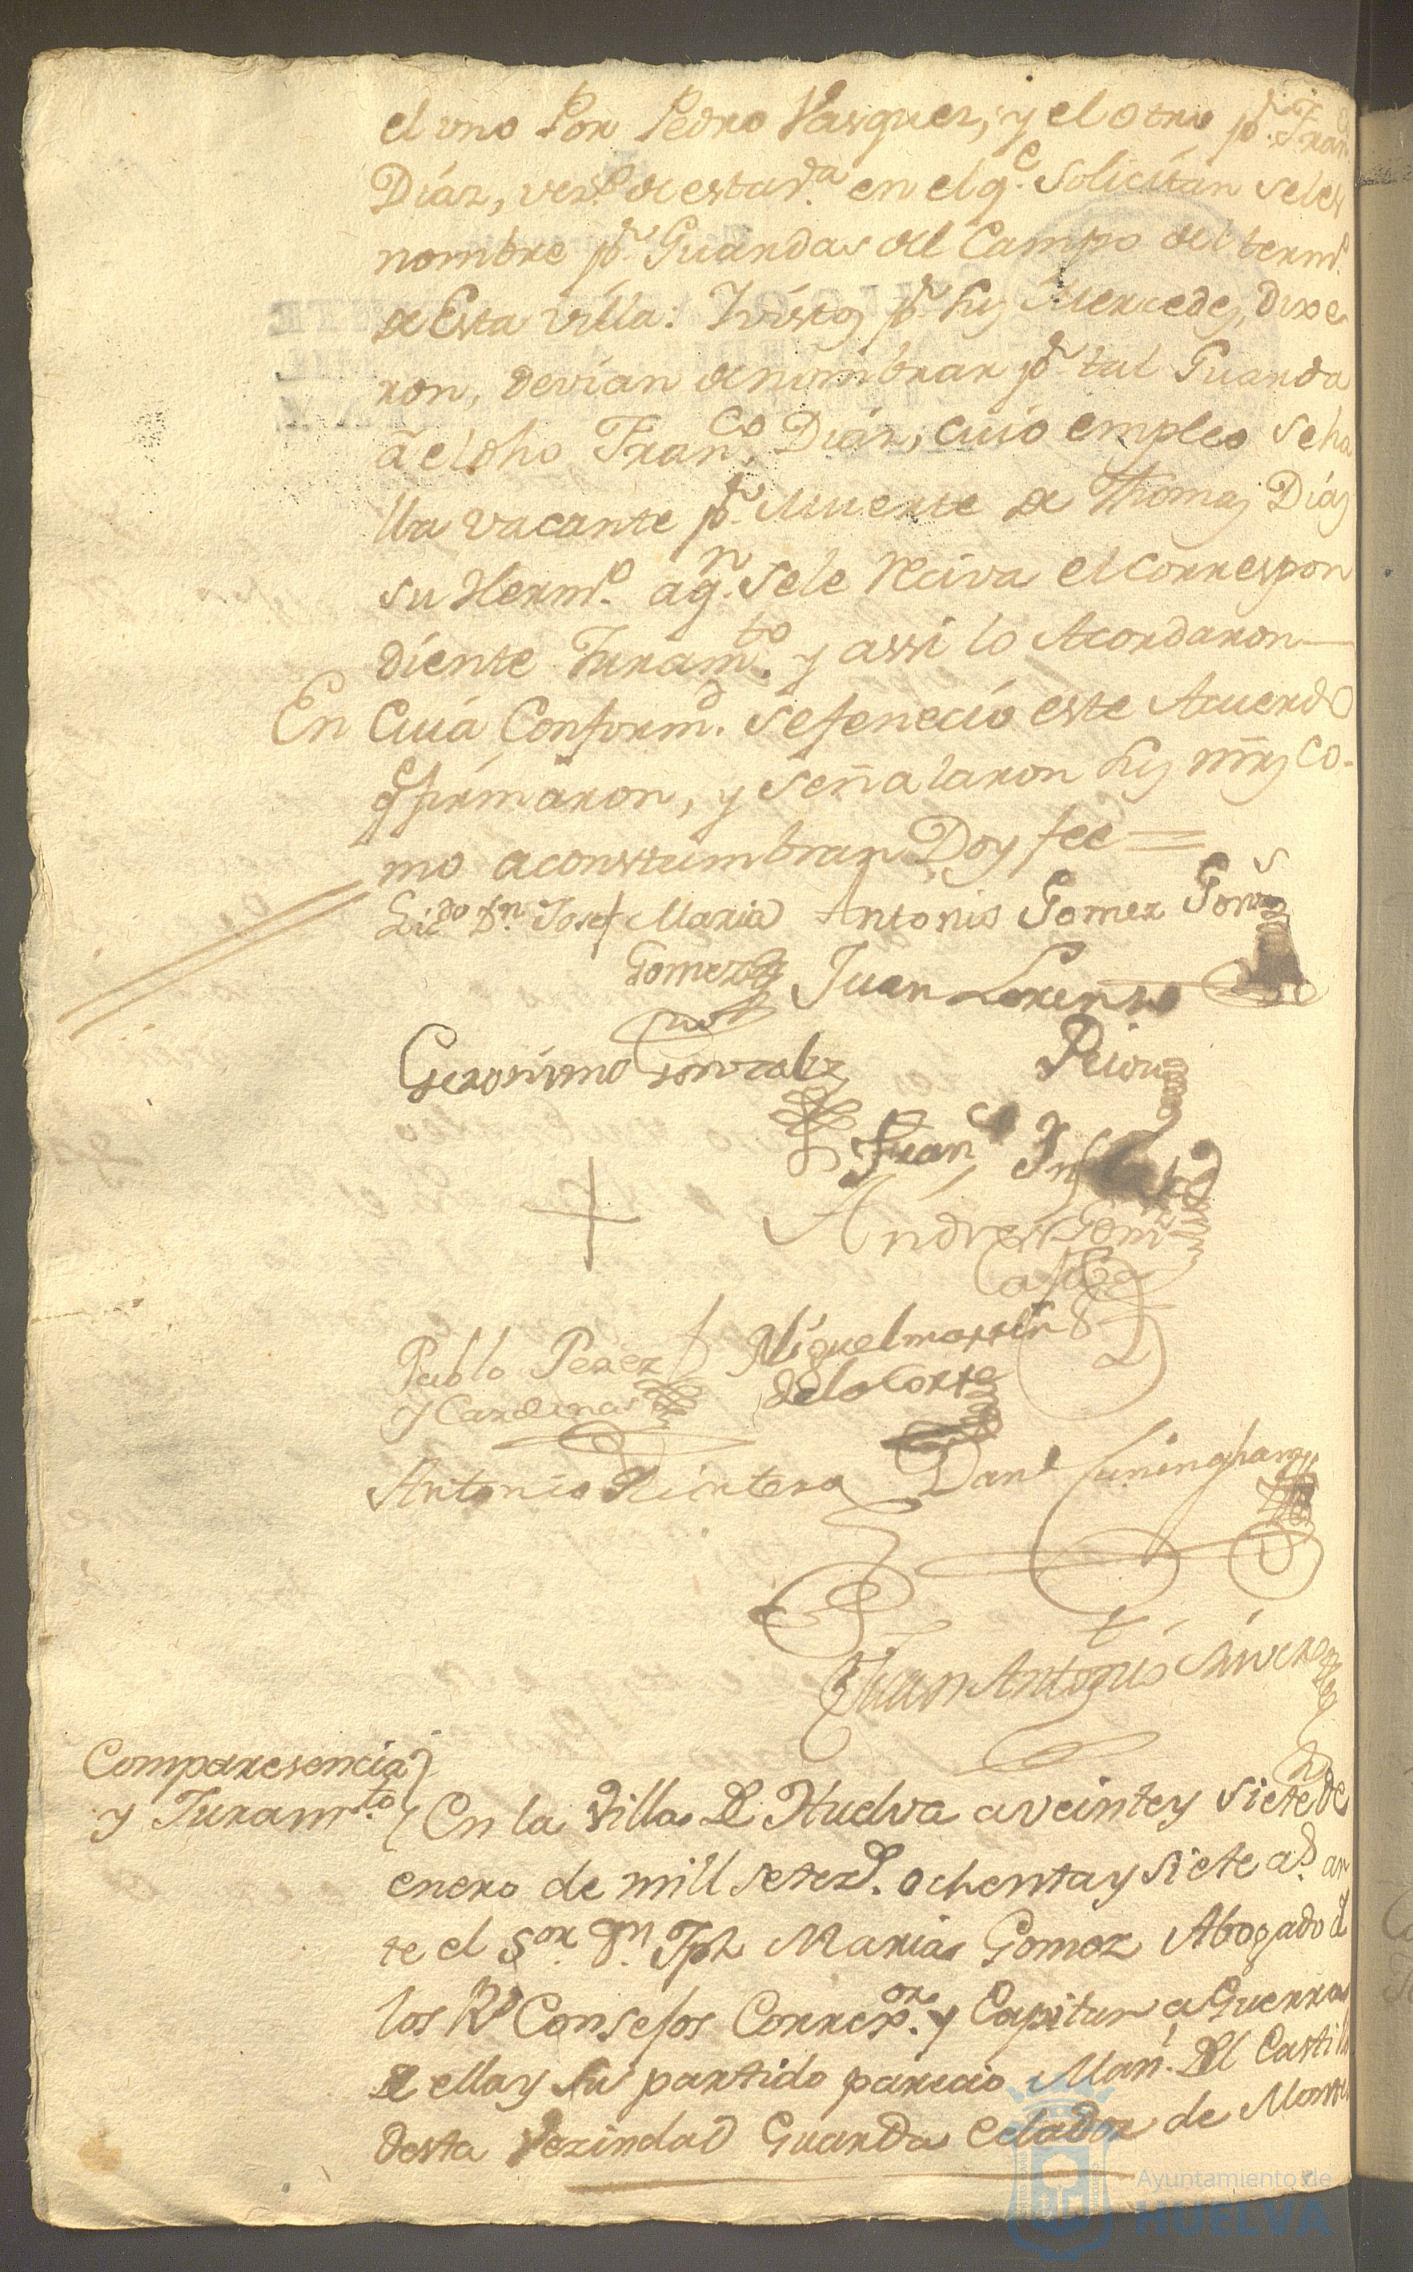 el vno Por Pedro Vasquez, y el otro pr. Fran
Diaz, vezs. de esta va. en el qe. Solicitan se les
nombre pr. Guardas del Campo del termo.
de Esta villa. Y visto pr. sus Mercedes, dixe
ron, devian de nombrar pr. tal Guarda
a el dho Franco. Diaz, cuio empleo se ha
lla vacante pr. Muerte de Thomas Dias
su Hermo. a qn. se le reciva el correspon
diente Juramto. y assi lo Acordaron
En Cuia Conformd. se feneció este Acuerdo
qe firmaron, y señalaron sus mrs co-
mo acostumbran Doy fee =
Licdo. Dn. Josef Maria Antonio Gomez
Gomez Juan Lorenzo
Geronimo Gonzalez
Franco.
Andres Gomz
Pablo Perez Miguel martin
y Cardenas de la Corte
Antonio Quintero Danl Cuningham
Juan Antonio
Comparesencia
y Juramto. En la Villa de Huelva a veinte y siete de
enero de mill setezs. ochenta y siete as. an
te el Sor. Dn. Jph Maria Gomez Abogado de
los Rs Consejos Correxor. y Capitan a Guerra
de ella y su partido parecio Man. del Castillo
desta Vezindad Guarda Celador de Montes
Ayuntamiento de
HUELVA